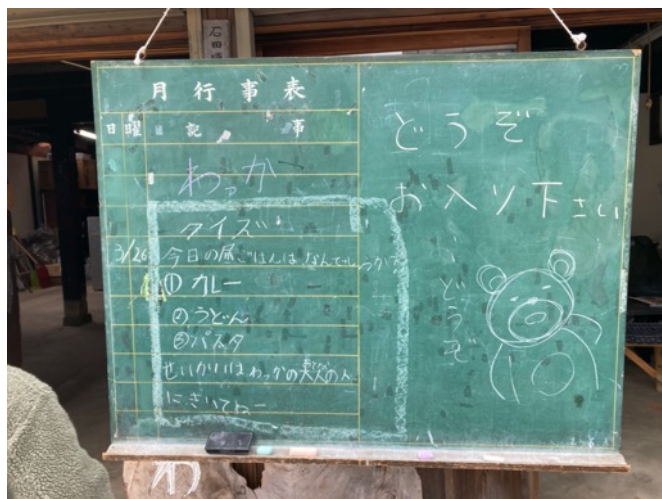 石田
月行事表
日 曜 記 事
わっか
クイズ
3/26 今日の昼ごはんはなんでしょうか?
① カレー
② うどん
③ パスタ
せいかいはわっかの大人の人
にきいてねー
どうぞ
お入り下さい
どうぞ
わ